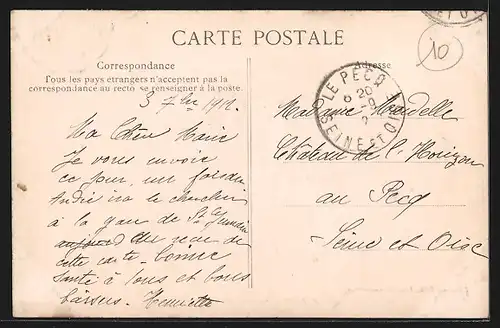 CARTE POSTALE
Correspondance
Tous les pays étrangers n'acceptent pas la
correspondance au recto se renseigner à la poste.
Adresse
10
LE PECQ
6 20
SEINE ET OISE
3 7bre 1912.
Ma Chère Marie
Je vous envoie
ce jour un
André ira le chercher
à la gare de St Germain
aujourd dès
cette carte - bonne
santé à tous et bons
baisers. Henriette
Madame
Château de l'Horizon
au Pecq
Seine et Oise